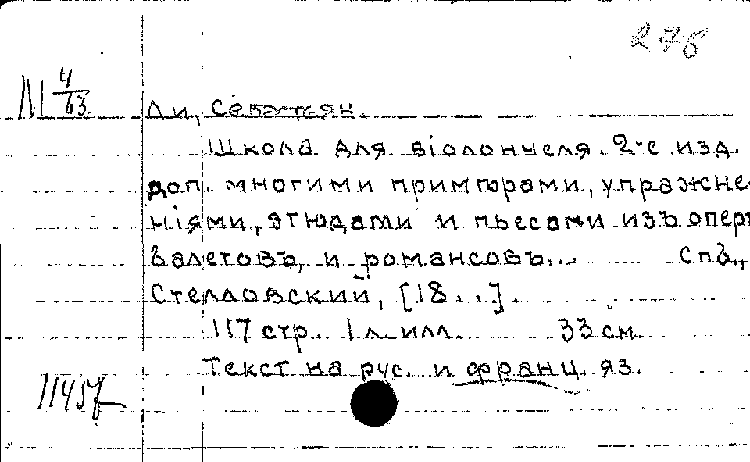 276
М 4/63
Ли, Себастьян.
Школа для віолончеля. 2-е изд.
доп. многими примѣрами, упражне-
ніями, этюдами и пьесами изъ оперъ
балетовъ, и романсовъ... Спб.,
Стелловский, [18..].
117 стр. 1 л. илл. 33 см.
Текст на рус. и франц. яз.